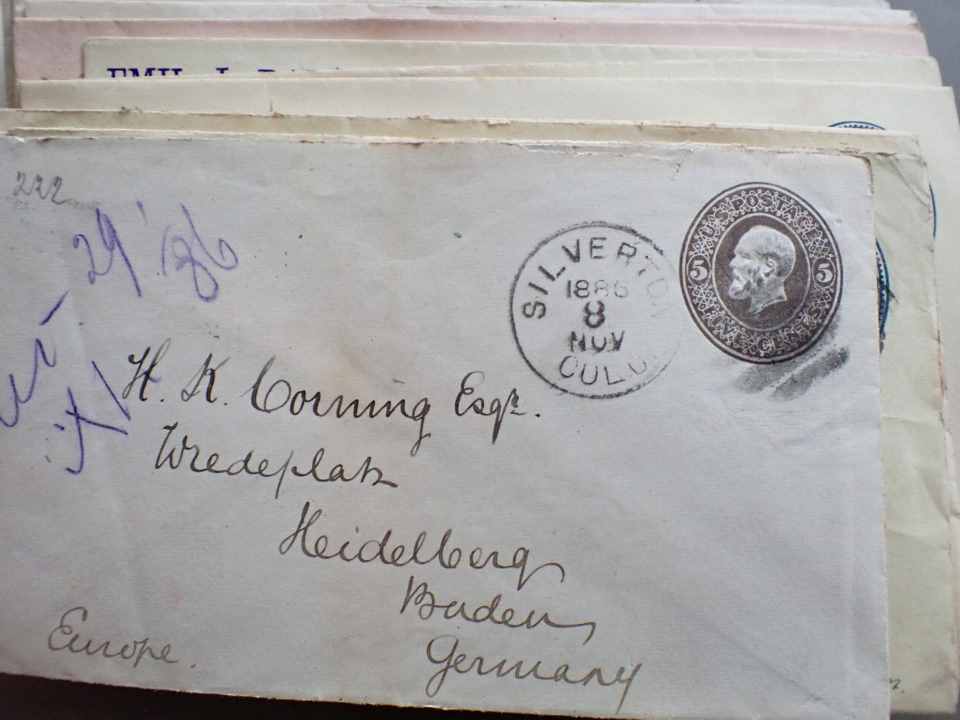 222
29 '86
U.S. POSTAGE
5 5
SILVERTON
1886
8
NOV
COLO
H. K. Corning Esqr.
Wredeplatz
Heidelberg
Baden
Germany
Europe.